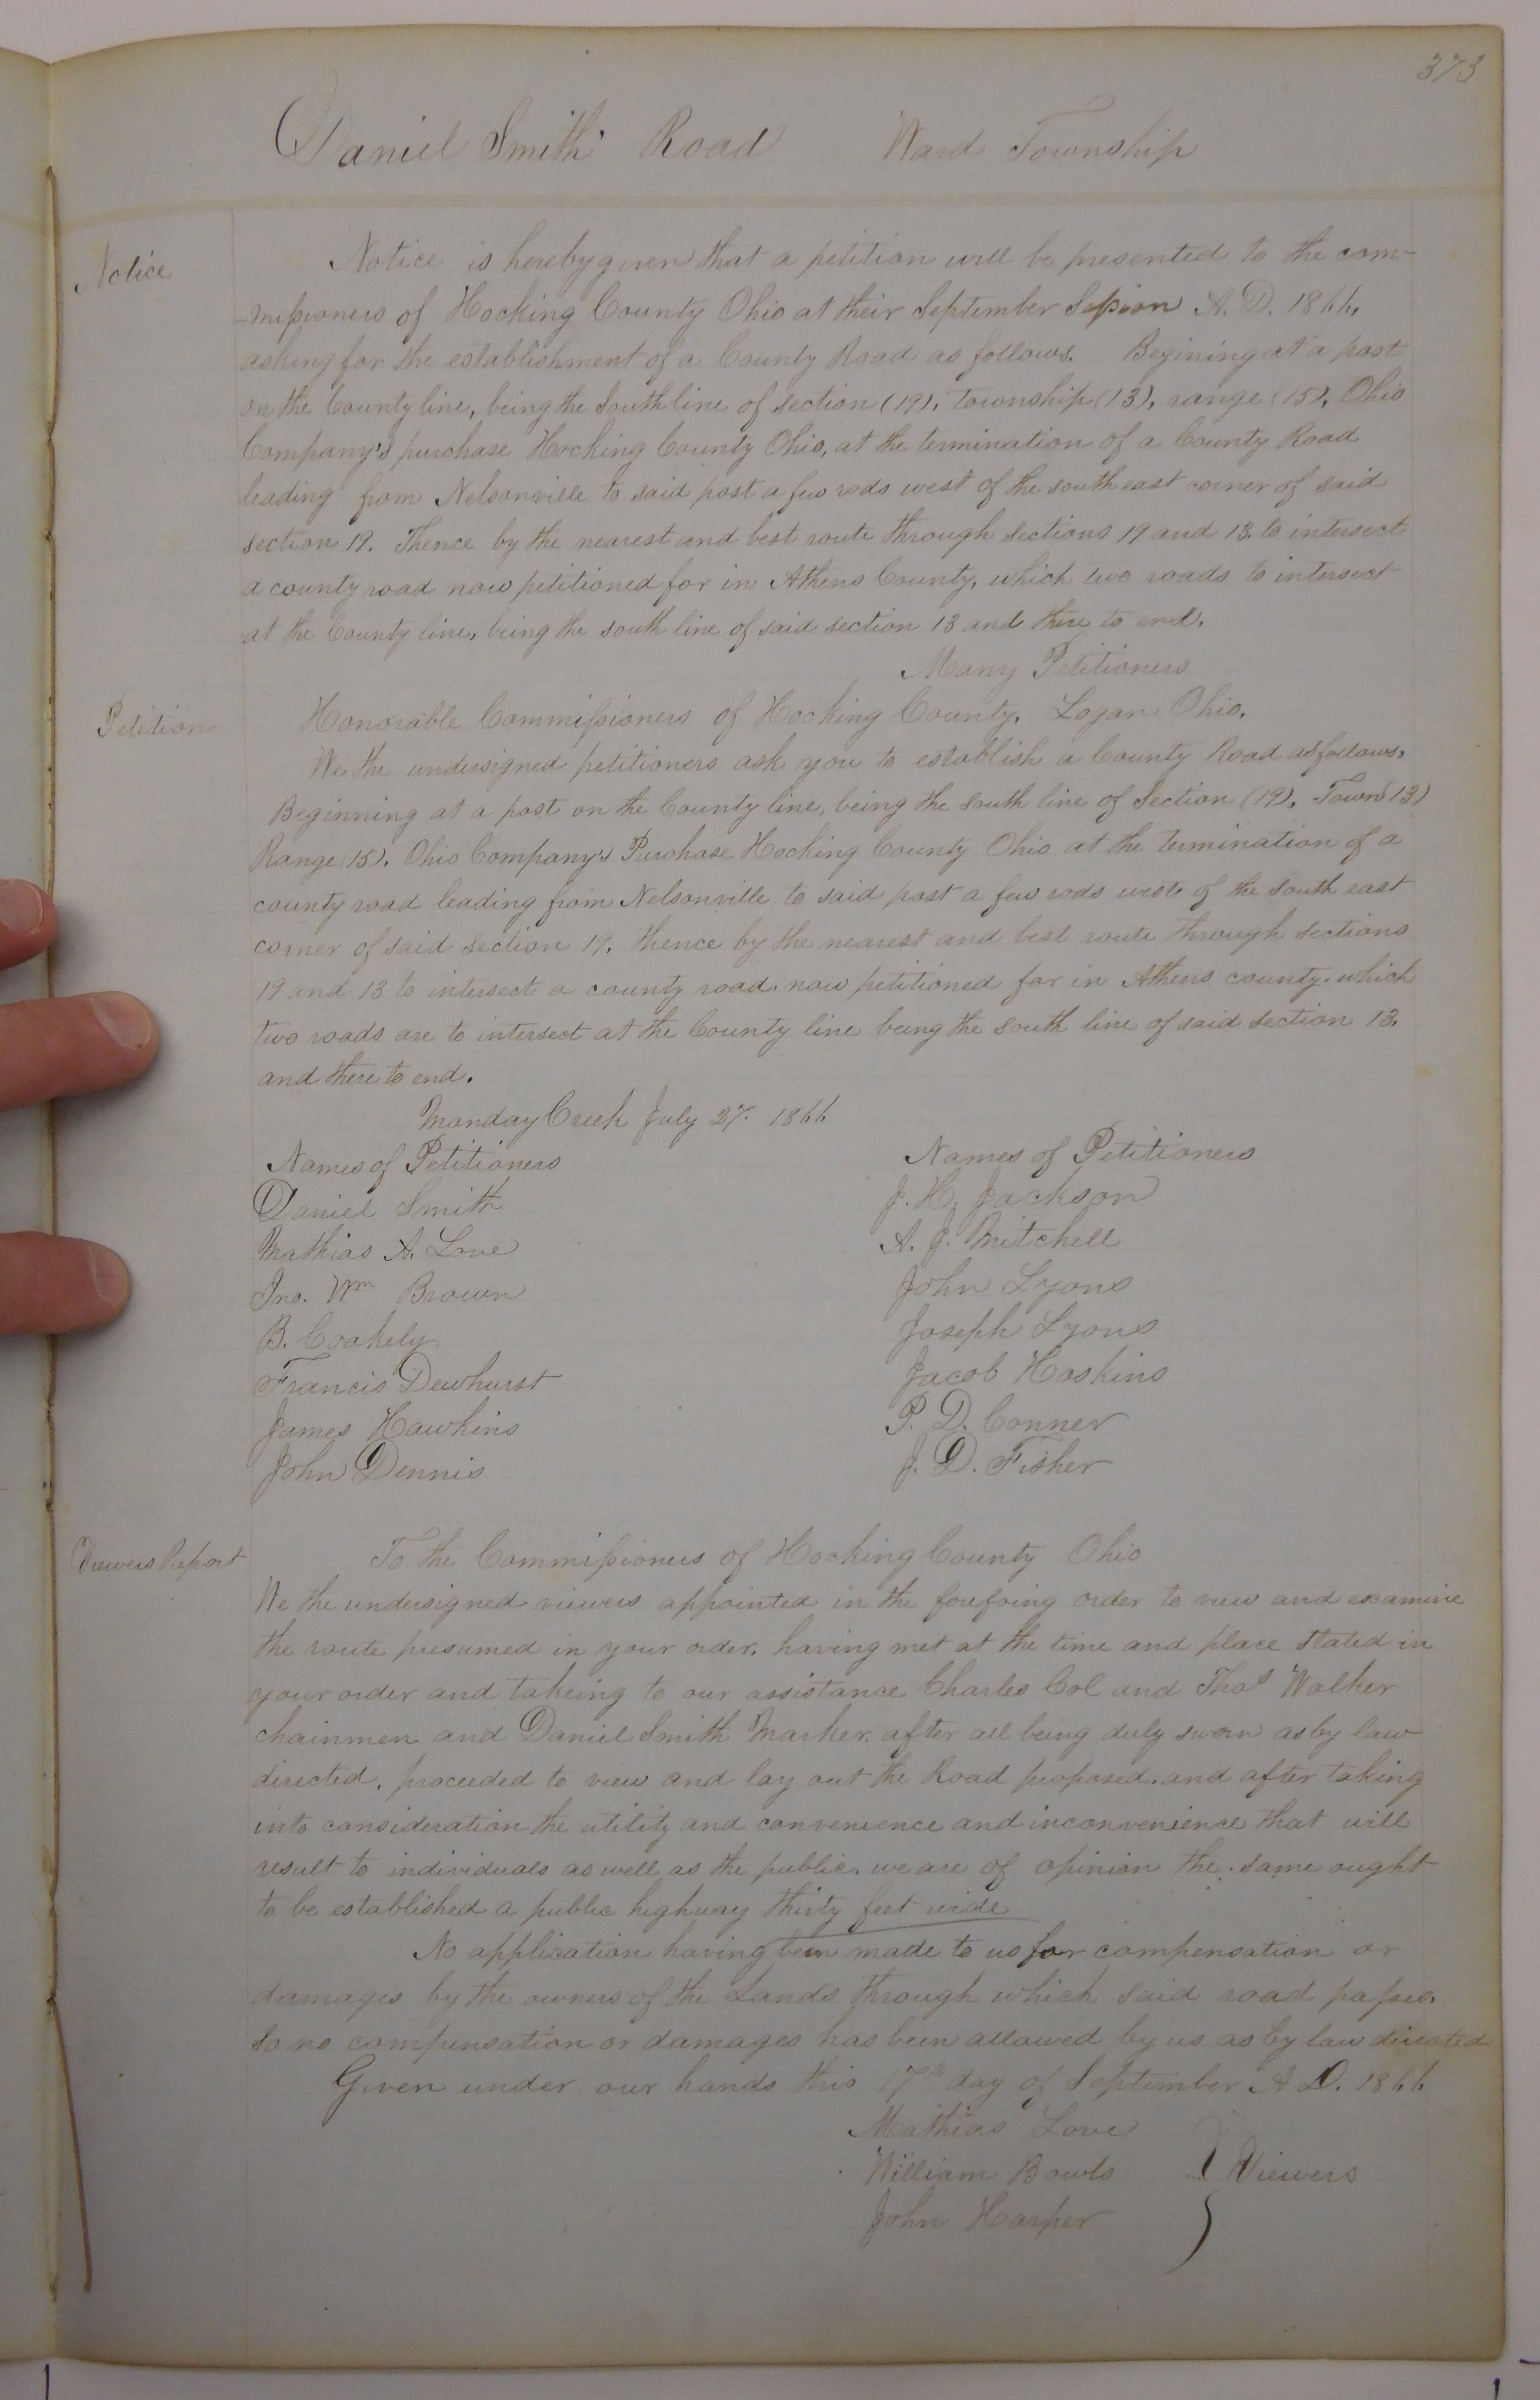 373
Daniel Smith Road Ward Township
Notice
Notice is hereby given that a petition will be presented to the com-
-missioners of Hocking County Ohio at their September Session A. D. 1866,
asking for the establishment of a County Road as follows. Begining at a post
on the County line, being the South line of section (19), township (13), range (15), Ohio
Company's purchase Hocking County Ohio, at the termination of a County Road
leading from Nelsonville to said post a few rods west of the south east corner of said
section 19. Thence by the nearest and best route through sections 19 and 13. to intersect
a county road now petitioned for in Athens County, which two roads to intersect
at the County line, being the south line of said section 13 and there to end.
Many Petitioners
Petition
Honorable Commissioners of Hocking County, Logan Ohio,
We the undersigned petitioners ask you to establish a County Road as follows,
Beginning at a post on the County line, being the South line of Section (19), Town (13)
Range (15), Ohio Company's Purchase Hocking County Ohio at the termination of a
county road leading from Nelsonville to said post a few rods west of the South east
corner of said section 19. thence by the nearest and best route through sections
19 and 13 to intersect a county road. now petitioned for in Athens county. which
two roads are to intersect at the County line being the south line of said section 13.
and there to end.
Monday Creek July 27. 1866
Names of Petitioners Names of Petitioners
Daniel Smith J. H. Jackson
Mathias A. Love A. J. Mitchell
Jno. Wm Brown John Lyons
B. Coakely Joseph Lyons
Francis Dewhurst Jacob Hoskins
James Hawkins P. D. Conner
John Dennis J. D. Fisher
Viewers Report
To the Commissioners of Hocking County Ohio
We the undersigned viewers appointed in the forefoing order to view and examine
the route presumed in your order, having met at the time and place stated in
your order and takeing to our assistance Charles Col and Thos Walker
chainmen and Daniel Smith Marker. after all being duly sworn as by law
directed, proceeded to view and lay out the Road proposed. and after taking
into consideration the utility and convenience and inconvenience that will
result to individuals as well as the public. we are of opinion the same ought
to be established a public highway thirty feet wide
No application having been made to us for compensation or
damages by the owners of the Lands through which said road passes.
So no compensation or damages has been allowed by us as by law directed
Given under our hands this 17th day of September A. D. 1866
Mathias Love
William Bowls } Viewers
John Harper